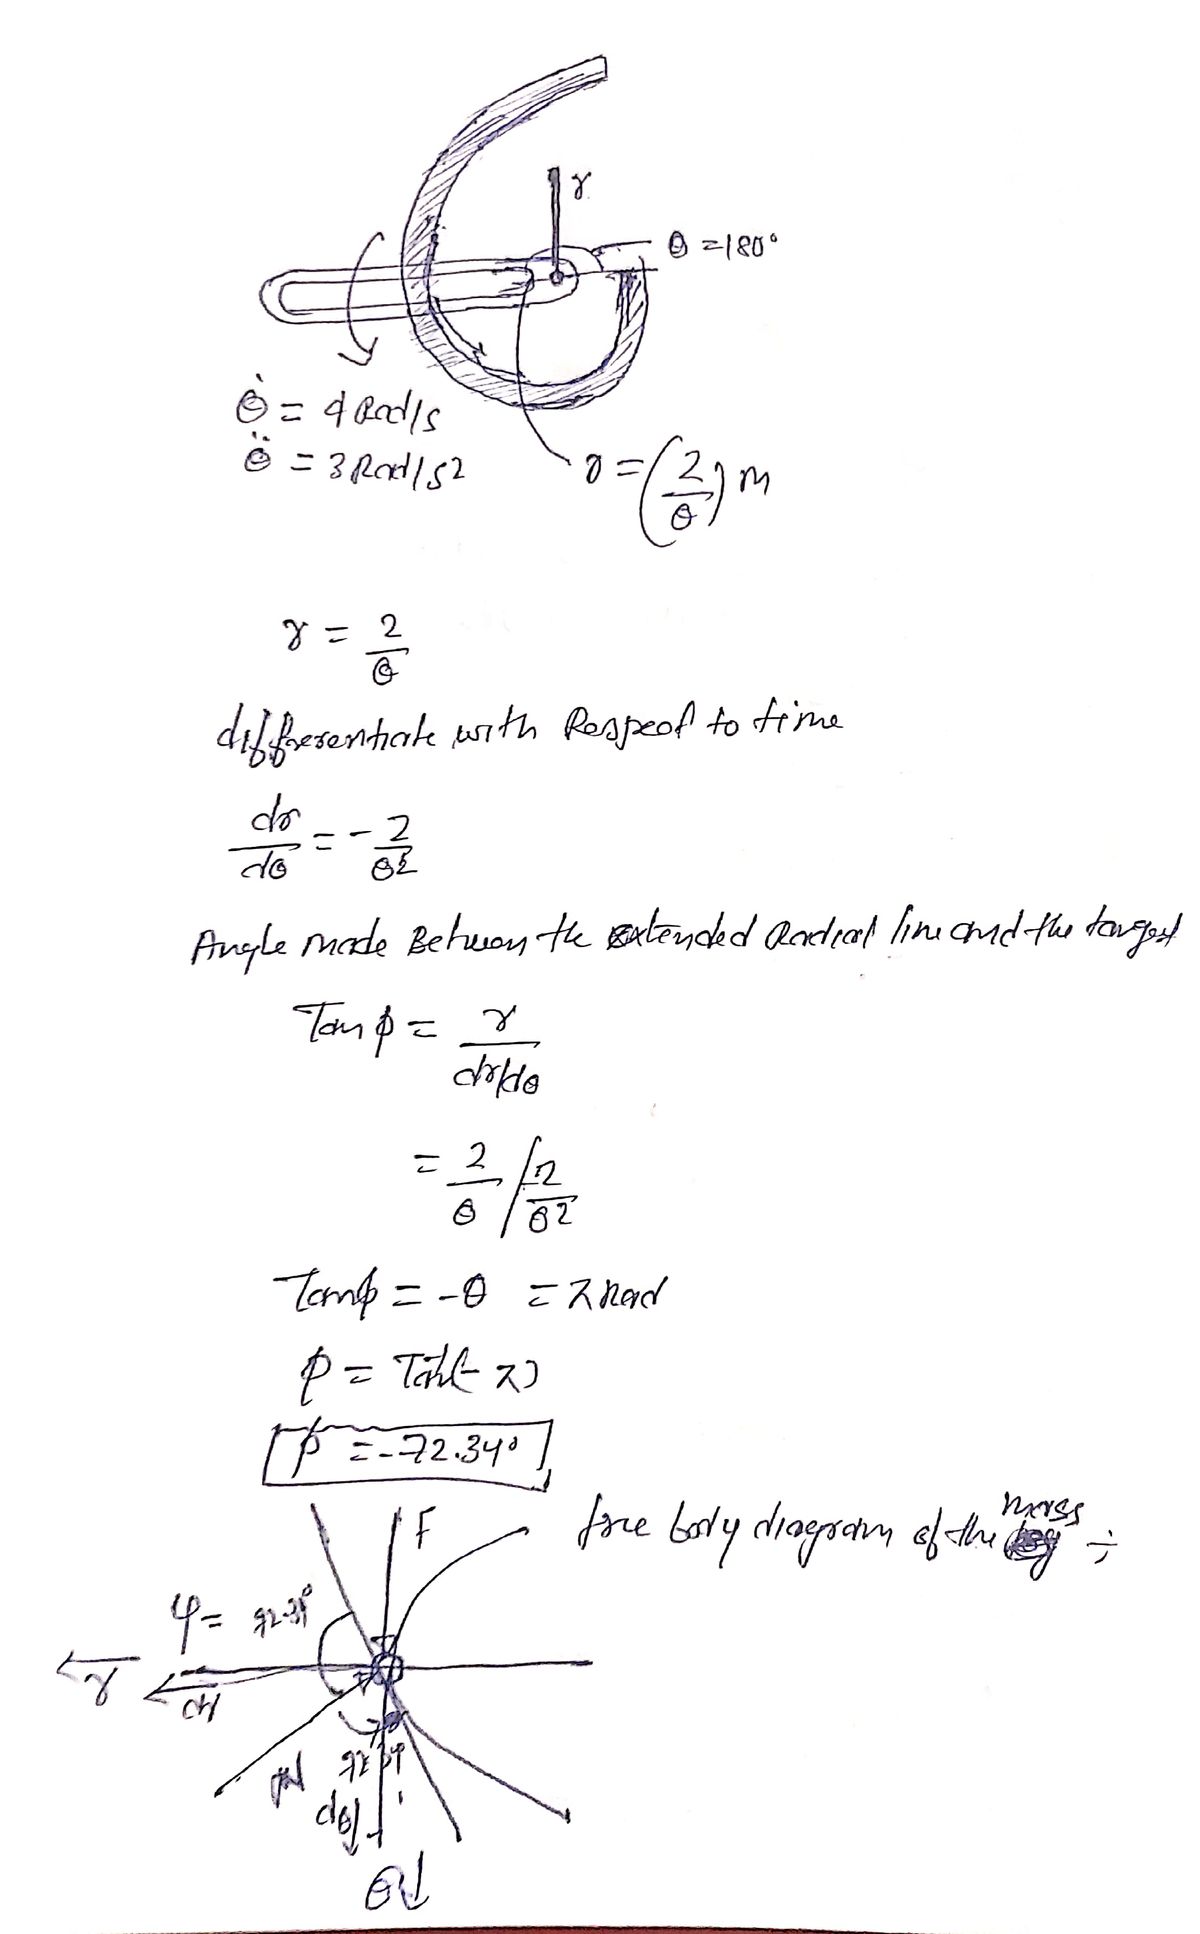 r
θ = 180°
θ̇ = 4 Rad/s
θ̈ = 3 Rad/s2
r = (2/θ) m
r = 2/θ
differentiate with Respect to time
dr/dθ = - 2/θ2
Angle made Between the extended Radial line and the tangent
Tan ϕ = r / dr/dθ
= 2/θ / -2/θ2
Tanϕ = -θ = π Rad
ϕ = Tan-1(- π)
ϕ = -72.34°
F
free body diagram of the mass ÷
ψ = 72.34°
r
dr
N
72.34
dθ
θ